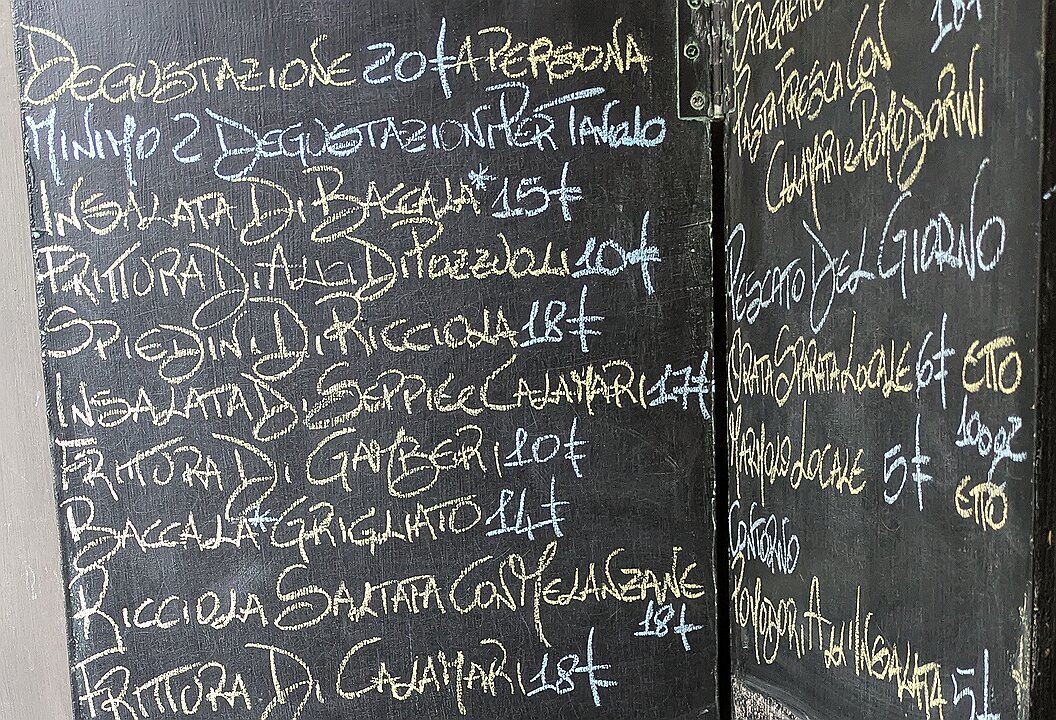 DEGUSTAZIONE 20€ A PERSONA
MINIMO 2 DEGUSTAZIONI PER TAVOLO
INSALATA DI BACCALA* 15€
FRITTURA DI ALICI DI POZZUOLI 10€
SPIEDINI DI RICCIOLA 18€
INSALATA DI SEPPIE E CALAMARI 17€
FRITTURA DI GAMBERI 10€
BACCALA* GRIGLIATO 14€
RICCIOLA SALTATA CON MELANZANE
18€
FRITTURA DI CALAMARI 18€
SPAGHETTO 18€
PASTA FRESCA CON
CALAMARI E POMODORINI
PESCATO DEL GIORNO
LOCALE 6€ ETTO
100gr
LOCALE 5€ ETTO
CONTORNO
POMODORI ALL'INSALATA 5€